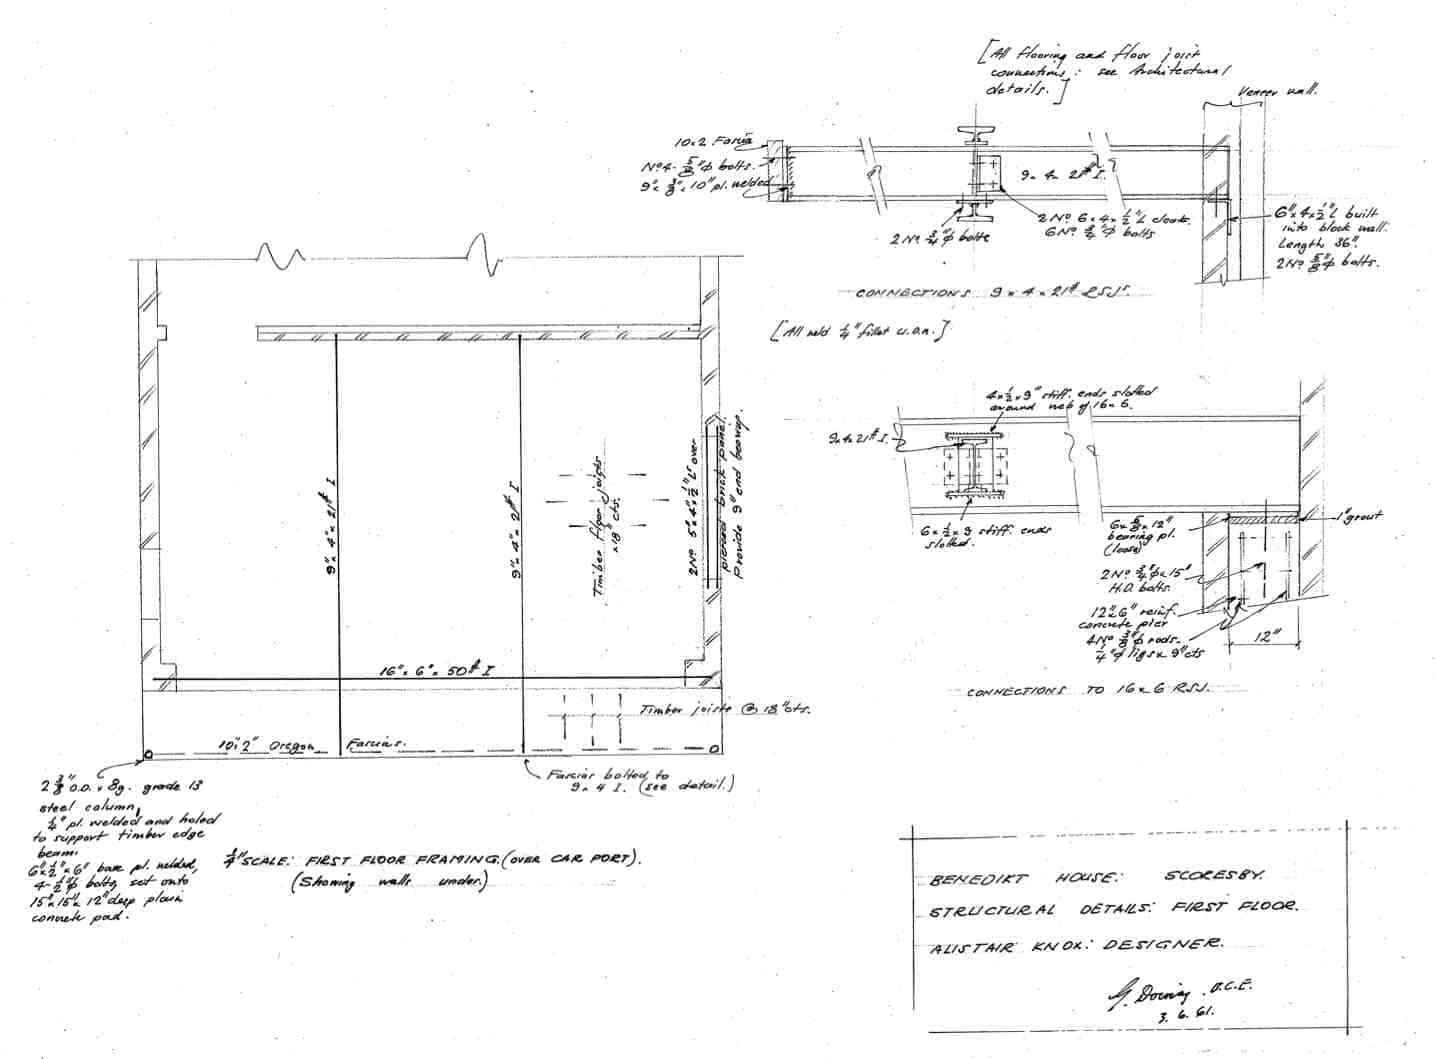 [All flooring and floor joist
connections: see Architectural
details.]
Veneer wall.
10x2 Fascia
No4- 5/8"φ bolts.
9"x 3/8"x 10" pl. welded
9x 4x 21# I.
2 No 3/4"φ bolts
2 No 6x4x 1/2" L cleats.
6No 3/4"φ bolts
6"x 4x 1/2" L built
into block wall.
Length 36".
2No 5/8"φ bolts.
CONNECTIONS 9 x 4 x 21# RSJs.
[All weld 1/4" fillet u.o.n.]
4x 1/2 x 9" stiff. ends slotted
around web of 16x6.
9x4x21# I.
6x 1/2 x 9 stiff. ends
slotted.
6x 5/8 x 12"
bearing pl.
(loose)
1" grout
2 No 3/4"φx15"
H.D. bolts.
12"x6" reinf.
concrete pier
4No 3/8"φ rods.
1/4"φ ligs x 9"cts
12"
CONNECTIONS TO 16x6 RSJ.
9"x 4"x 21# I
9"x 4"x 21# I
Timber floor joists
x18" cts.
2No 5"x4"x 1/2" Ls over
pierced brick panel.
Provide 9" end bearing.
16"x 6"x 50# I
Timber joists @ 18"cts.
10"x2" Oregon Fascias.
Fascias bolted to
9x4 I. (see detail.)
2 3/8" O.D. x 8g. grade 13
steel column,
1/4" pl. welded and holed
to support timber edge
beam.
6"x 1/2"x 6" base pl. welded,
4- 1/2"φ bolts, set onto
15"x15"x 12"deep plain
concrete pad.
1/4" SCALE: FIRST FLOOR FRAMING. (OVER CAR PORT).
(Showing walls under.)
BENEDIKT HOUSE: SCORESBY.
STRUCTURAL DETAILS: FIRST FLOOR.
ALISTAIR KNOX: DESIGNER.
3. 6. 61.